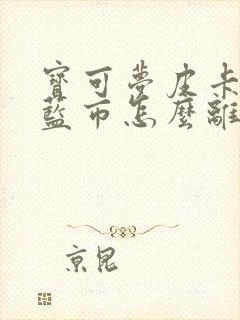 寶可夢皮卡
藍市怎麼離
京昆